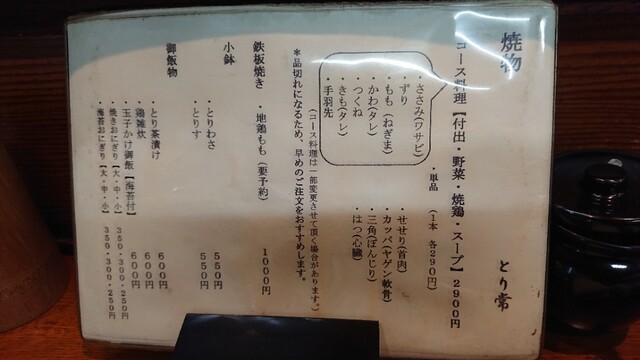 焼物
とり常
コース料理【付出・野菜・焼鶏・スープ】2900円
・単品 (1本 各290円)
・ささみ(ワサビ)
・ずり
・もも(ねぎま)
・かわ(タレ)
・つくね
・きも(タレ)
・手羽先
・せせり(首肉)
・カッパ(ヤゲン軟骨)
・三角(ぼんじり)
・はつ(心臓)
(コース料理は一部変更させて頂く場合があります。)
*品切れになるため、早めのご注文をおすすめします。
鉄板焼き
・地鶏もも(要予約) 1000円
小鉢
・とりわさ 550円
・とりす 550円
御飯物
・とり茶漬け 600円
・鶏雑炊 600円
・玉子かけ御飯【海苔付】 600円
・焼きおにぎり【大・中・小】 350・300・250円
・海苔おにぎり【大・中・小】 350・300・250円